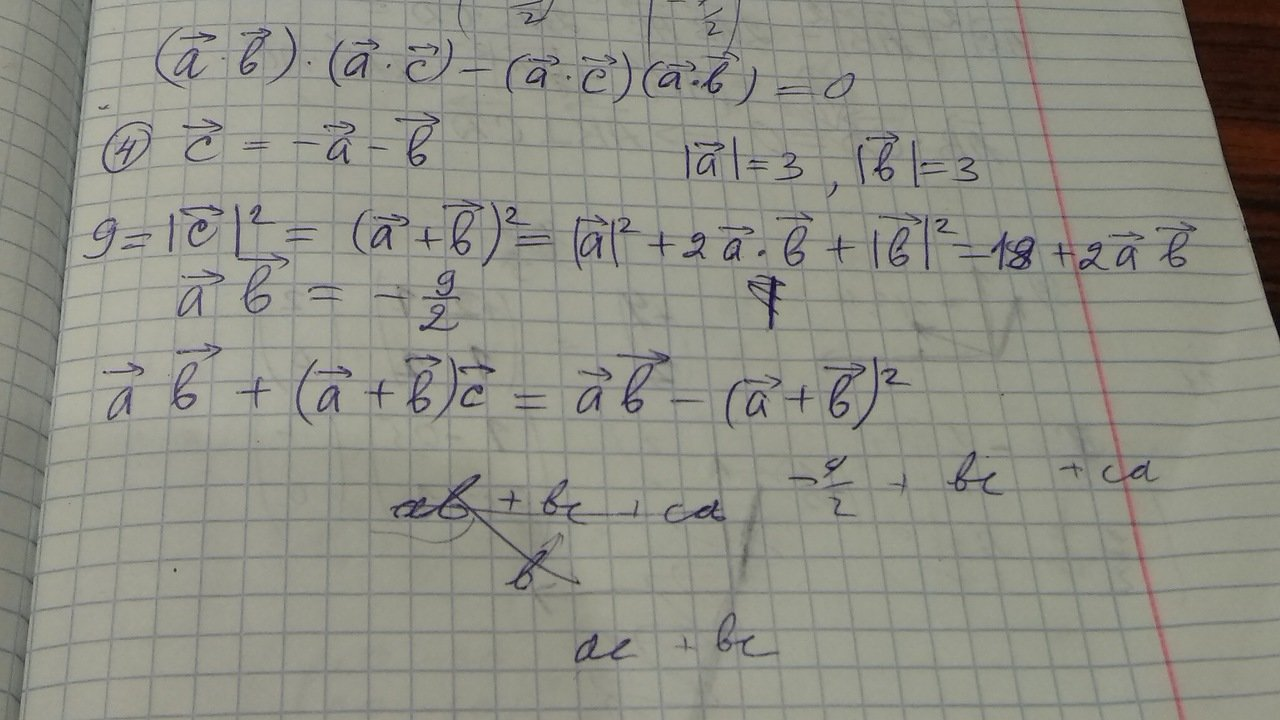 (a⃗ · b⃗) · (a⃗ · c⃗) − (a⃗ · c⃗)(a⃗ · b⃗) = 0
④ c⃗ = −a⃗ − b⃗   |a⃗| = 3 , |b⃗| = 3
9 = |c⃗|² = (a⃗ + b⃗)² = |a⃗|² + 2a⃗ · b⃗ + |b⃗|² = 18 + 2a⃗ b⃗
a⃗ b⃗ = − 9/2
a⃗ b⃗ + (a⃗ + b⃗)c⃗ = a⃗ b⃗ − (a⃗ + b⃗)²
− 9/2 + bc + ca
ab + bc + ca
b
ac + bc